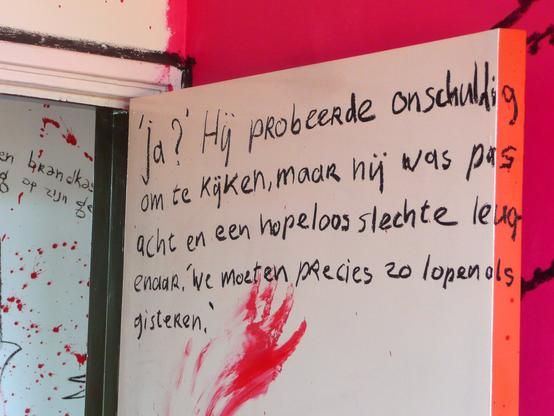 'ja?' Hij probeerde onschuldig
om te kijken, maar hij was pas
acht en een hopeloos slechte leug-
enaar. 'We moeten precies zo lopen als
gisteren.'
en brandkas
op zijn ge